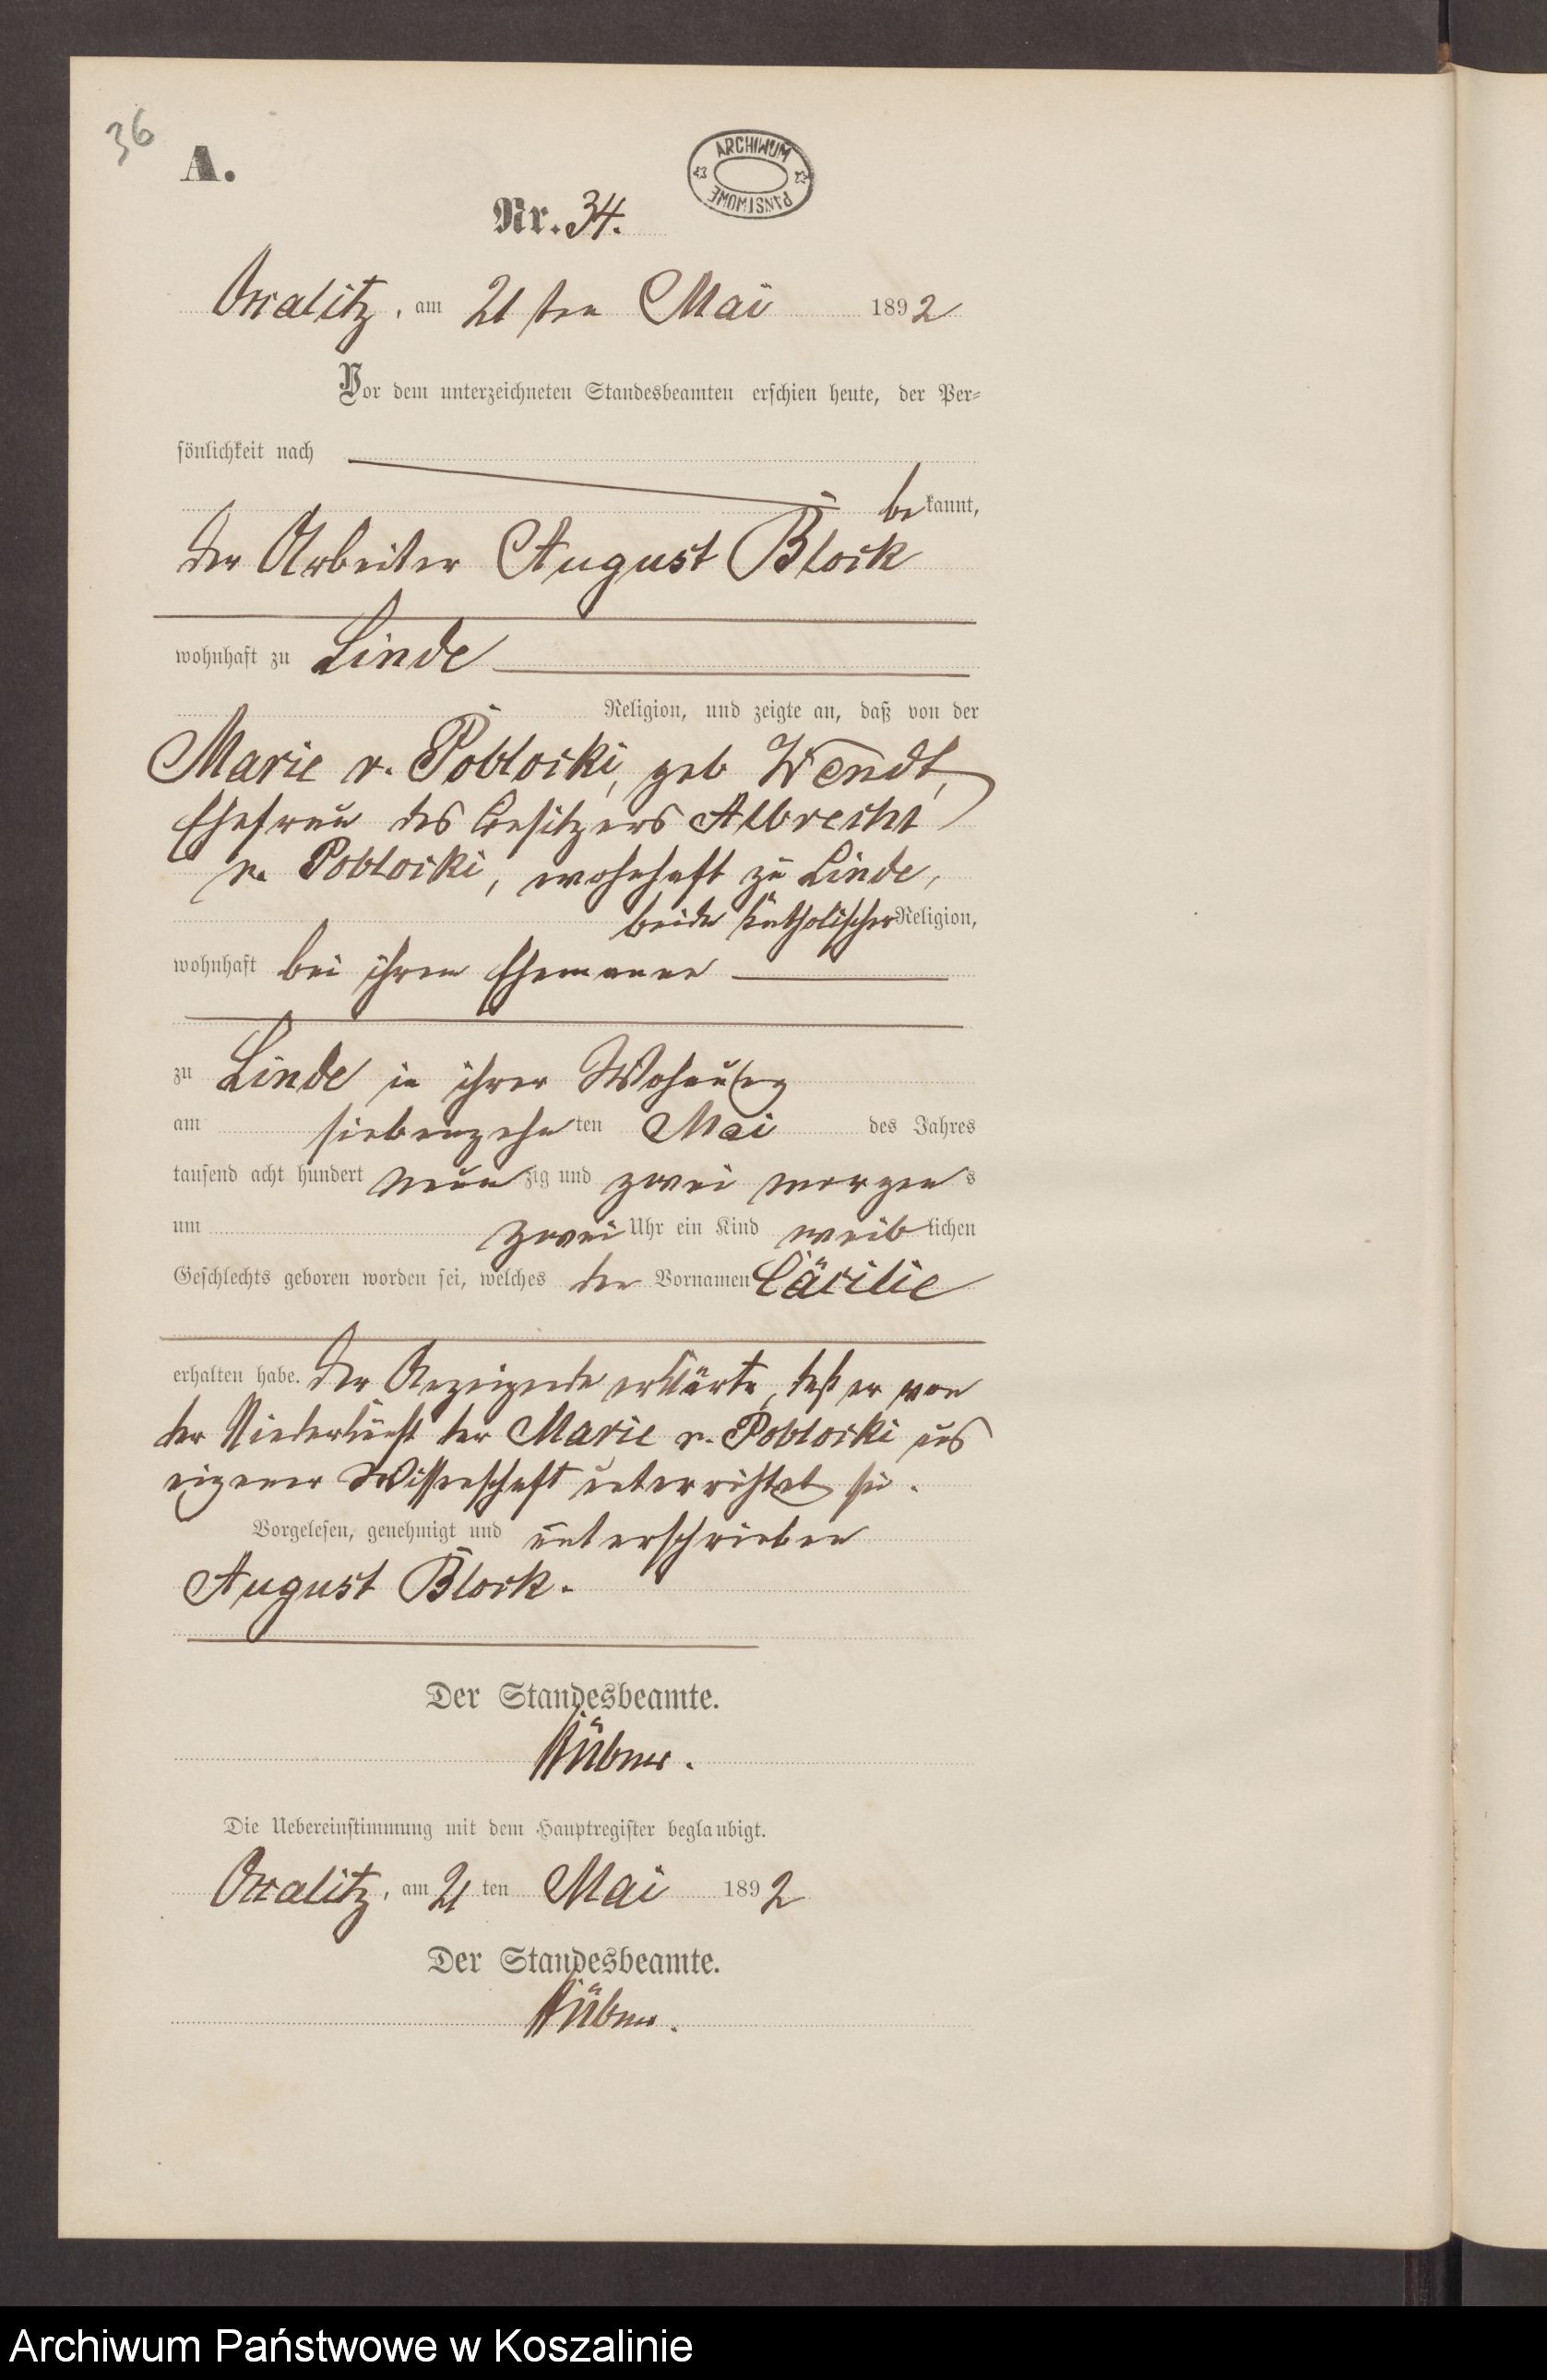 36
A.
ARCHIWUM PAŃSTWOWE
Nr. 34.
Osralitz, am 21 ten Mai 1892
Vor dem unterzeichneten Standesbeamten erschien heute, der Per-
sönlichkeit nach
bekannt,
der Arbeiter August Block
wohnhaft zu Linde
Religion, und zeigte an, daß von der
Marie v. Poblocki, geb Wendt,
Ehefrau des Besitzers Albrecht
v. Poblocki, wohnhaft zu Linde,
beide katholischer Religion,
wohnhaft bei ihrem Ehemanne
zu Linde in ihrer Wohnung
am siebenzehnten Mai des Jahres
tausend acht hundert neunzig und zwei morgens
um zwei Uhr ein Kind weiblichen
Geschlechts geboren worden sei, welches den Vornamen Cäcilie
erhalten habe. Der Anzeigende erklärte, daß er von
der Niederkunft der Marie v. Poblocki aus
eigener Wissenschaft unterrichtet sei.
Vorgelesen, genehmigt und unterschrieben
August Block.
Der Standesbeamte.
Hübner.
Die Uebereinstimmung mit dem Hauptregister beglaubigt.
Osralitz, am 21 ten Mai 1892
Der Standesbeamte.
Hübner.
Archiwum Państwowe w Koszalinie